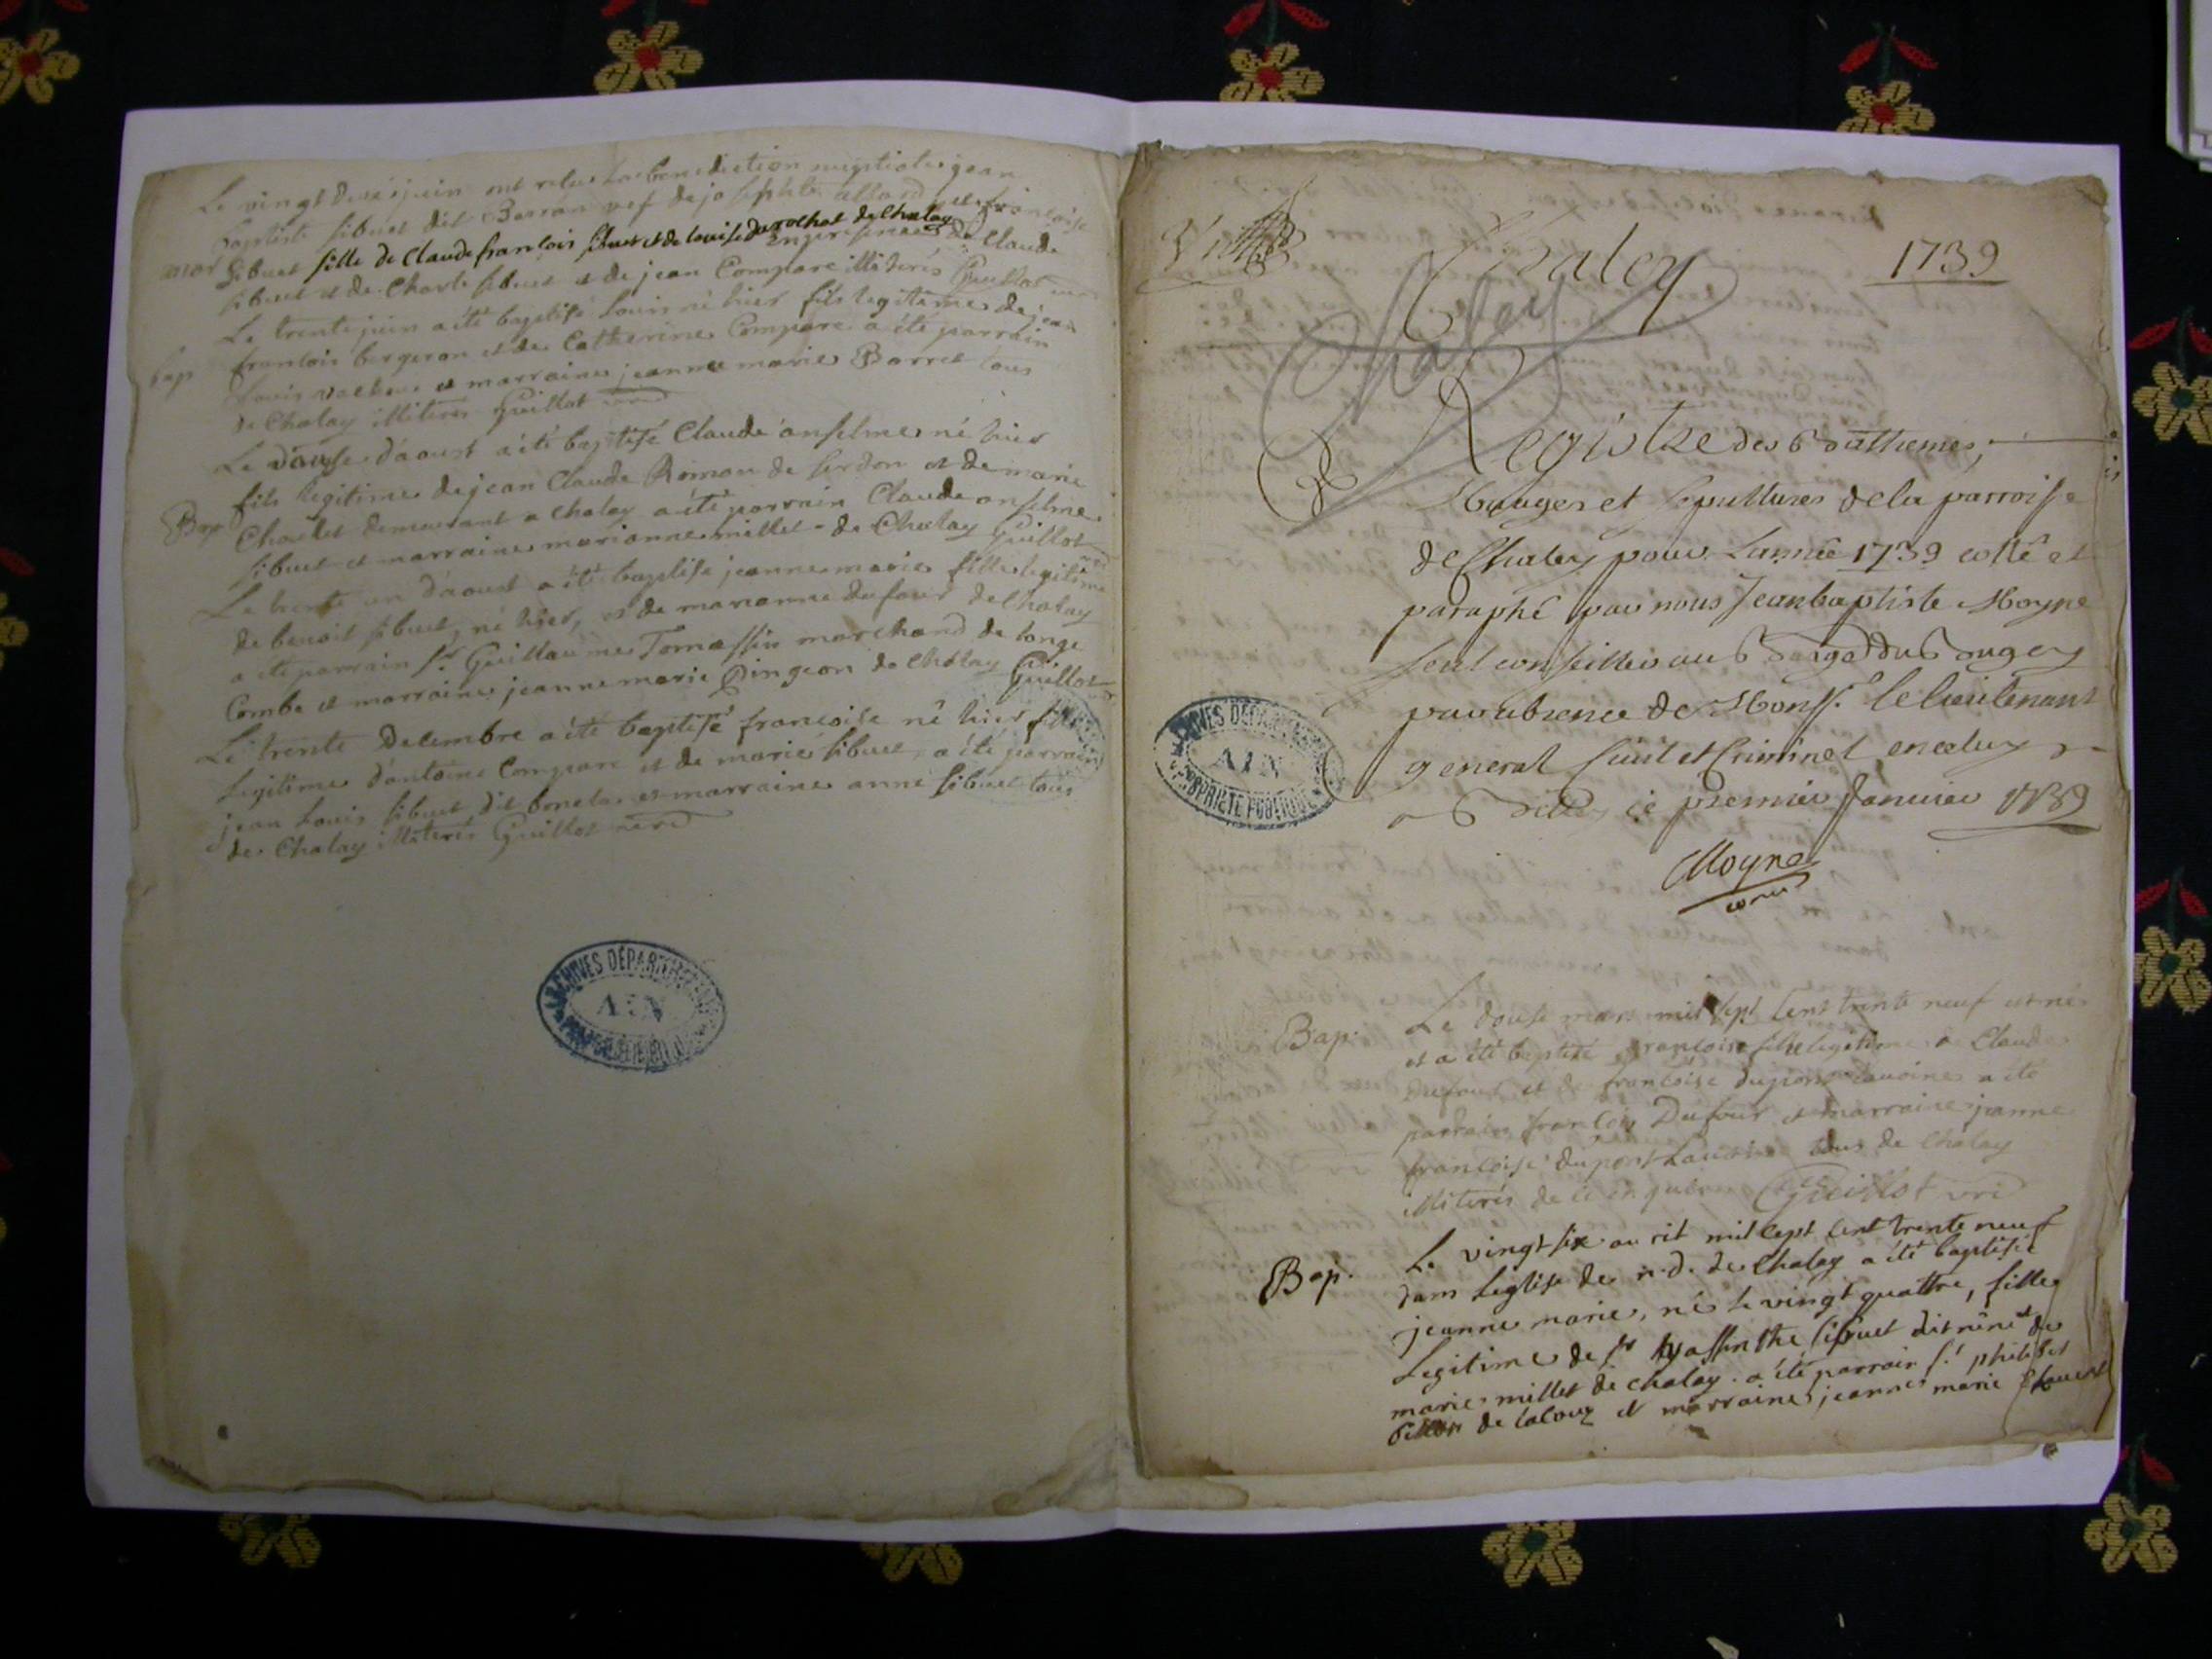 Le vingt deux juin ont reçu la benediction nuptiale jean
baptiste sibuet dit Barran vef de josephte allard et françoise
mar
sibuet fille de Claude françois sibuet et de louise durochat de chaley
en presence de Claude
sibuet et de Charle sibuet et de jean Compare illiterés Guillot
Le trente juin a été baptisé louis né hier fils legitime de jean
bap
francois bergeron et de Catherine Compare a été parrain
Louis et marraine jeanne marie Barret tous
de Chaley illiterés Guillot
Le douse d'aoust a été baptisé Claude anselme né hier
fils legitime de jean Claude Roman de serdon et de marie
Bap
Charlet demeurant a chaley a été parrain Claude anselme
sibuet et marraine marianne millet de Chaley Guillot
Le trente un d'aoust a été baptisé jeanne marie fille legitime
de benoit sibuet, né hier, et de marianne dufour de Chaley
a été parrain sr. Guillaume Tomassin marchand de longe
Combe et marraine jeanne marie Pingeon de Chaley Guillot
Le trente decembre a été baptisé francoise né hier fille
legitime d'antoine Compare et de marie sibuet, a été parrain
jean Louis sibuet dit et marraine anne sibuet tous
de Chaley illiterés Guillot
ARCHIVES DÉPARTEMENTALES
AIN
PROPRIÉTÉ PUBLIQUE
Chaley
1739
Chaley
Registre des Bathemes,
Mariages et Sepultures de la parroisse
de Chaley pour Lannée 1739 cotté et
paraphé par nous Jean baptiste Moyne
seul conseiller au Bailliage du Bugey
par absence de Monsr. le lieutenant
general Civil et Criminel en celuy
ARCHIVES DÉPARTEMENTALES
AIN
PROPRIÉTÉ PUBLIQUE
a Belley ce premier Janvier 1739
Moyne
Bap.
Le douse mars mil sept cent trente neuf est né
et a été baptisé francoise fille legitime a Claude
Dufour et de francoise dupont a été
parrain francois Dufour et marraine jeanne
francoise dupont tous de Chaley
illiterés de ce enquis Guillot
Bap.
Le vingt six avrit mil cept cent trente neuf
dans Leglise de n.d. de Chaley a été baptisée
jeanne marie, née le vingt quattre, fille
Legitime de sr hyassinthe sibuet dit réné et de
marie millet de chaley. a été parrain sr. philibert
de et marraine jeanne marie